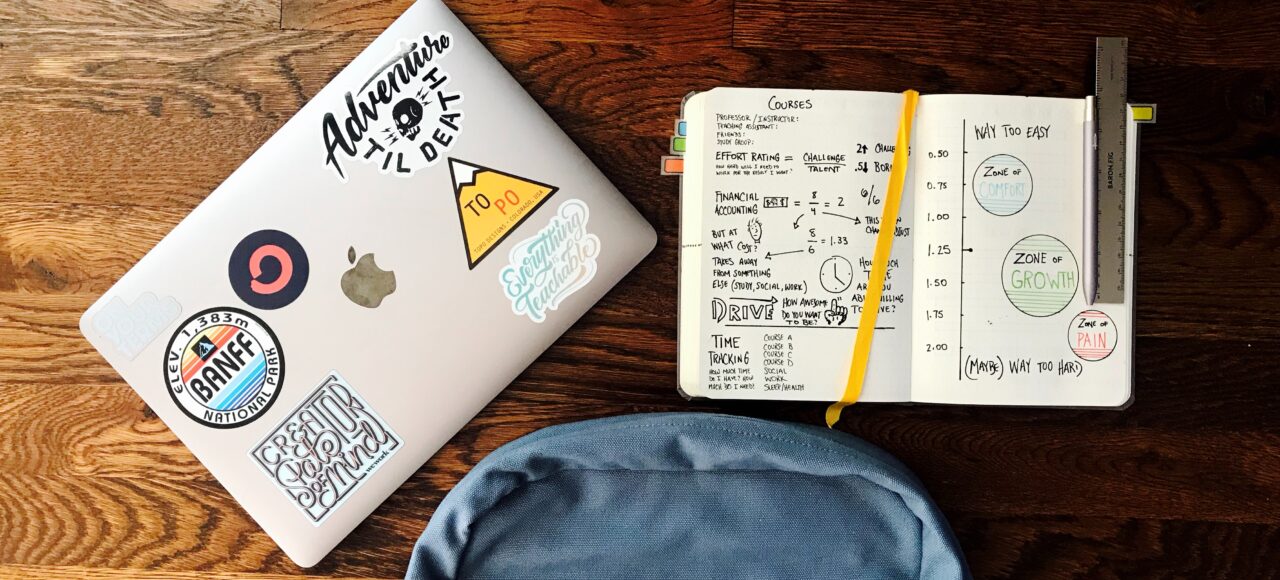 Adventure
'TIL DEATH
TO PO
TOPO DESIGNS • COLORADO, USA
Everything
is
Teachable
ELEV. 1,383m
BANFF
NATIONAL PARK
CREATOR
&
Pays
of Mind
wework
COURSES
PROFESSOR / INSTRUCTOR:
TEACHING ASSISTANT:
FRIENDS:
STUDY GROUP:
EFFORT RATING = CHALLENGE
TALENT
HOW HARD WILL I NEED TO
WORK FOR THE RESULT I WANT?
FINANCIAL
ACCOUNTING = 8/4 = 2
6/6
BUT AT
WHAT COST?
8/6 = 1.33
TAKES AWAY
FROM SOMETHING
ELSE (STUDY, SOCIAL, WORK)
DRIVE
HOW AWESOME
DO YOU WANT
TO BE?
TIME
TRACKING
HOW MUCH TIME
DO I HAVE? HOW
MUCH DO I NEED?
COURSE A
COURSE B
COURSE C
COURSE D
SOCIAL
WORK
SLEEP/HEALTH
WAY TOO EASY
0.50
0.75
1.00
1.25
1.50
1.75
2.00
ZONE OF
COMFORT
ZONE OF
GROWTH
ZONE OF
PAIN
(MAYBE) WAY TOO HARD
BARON FIG